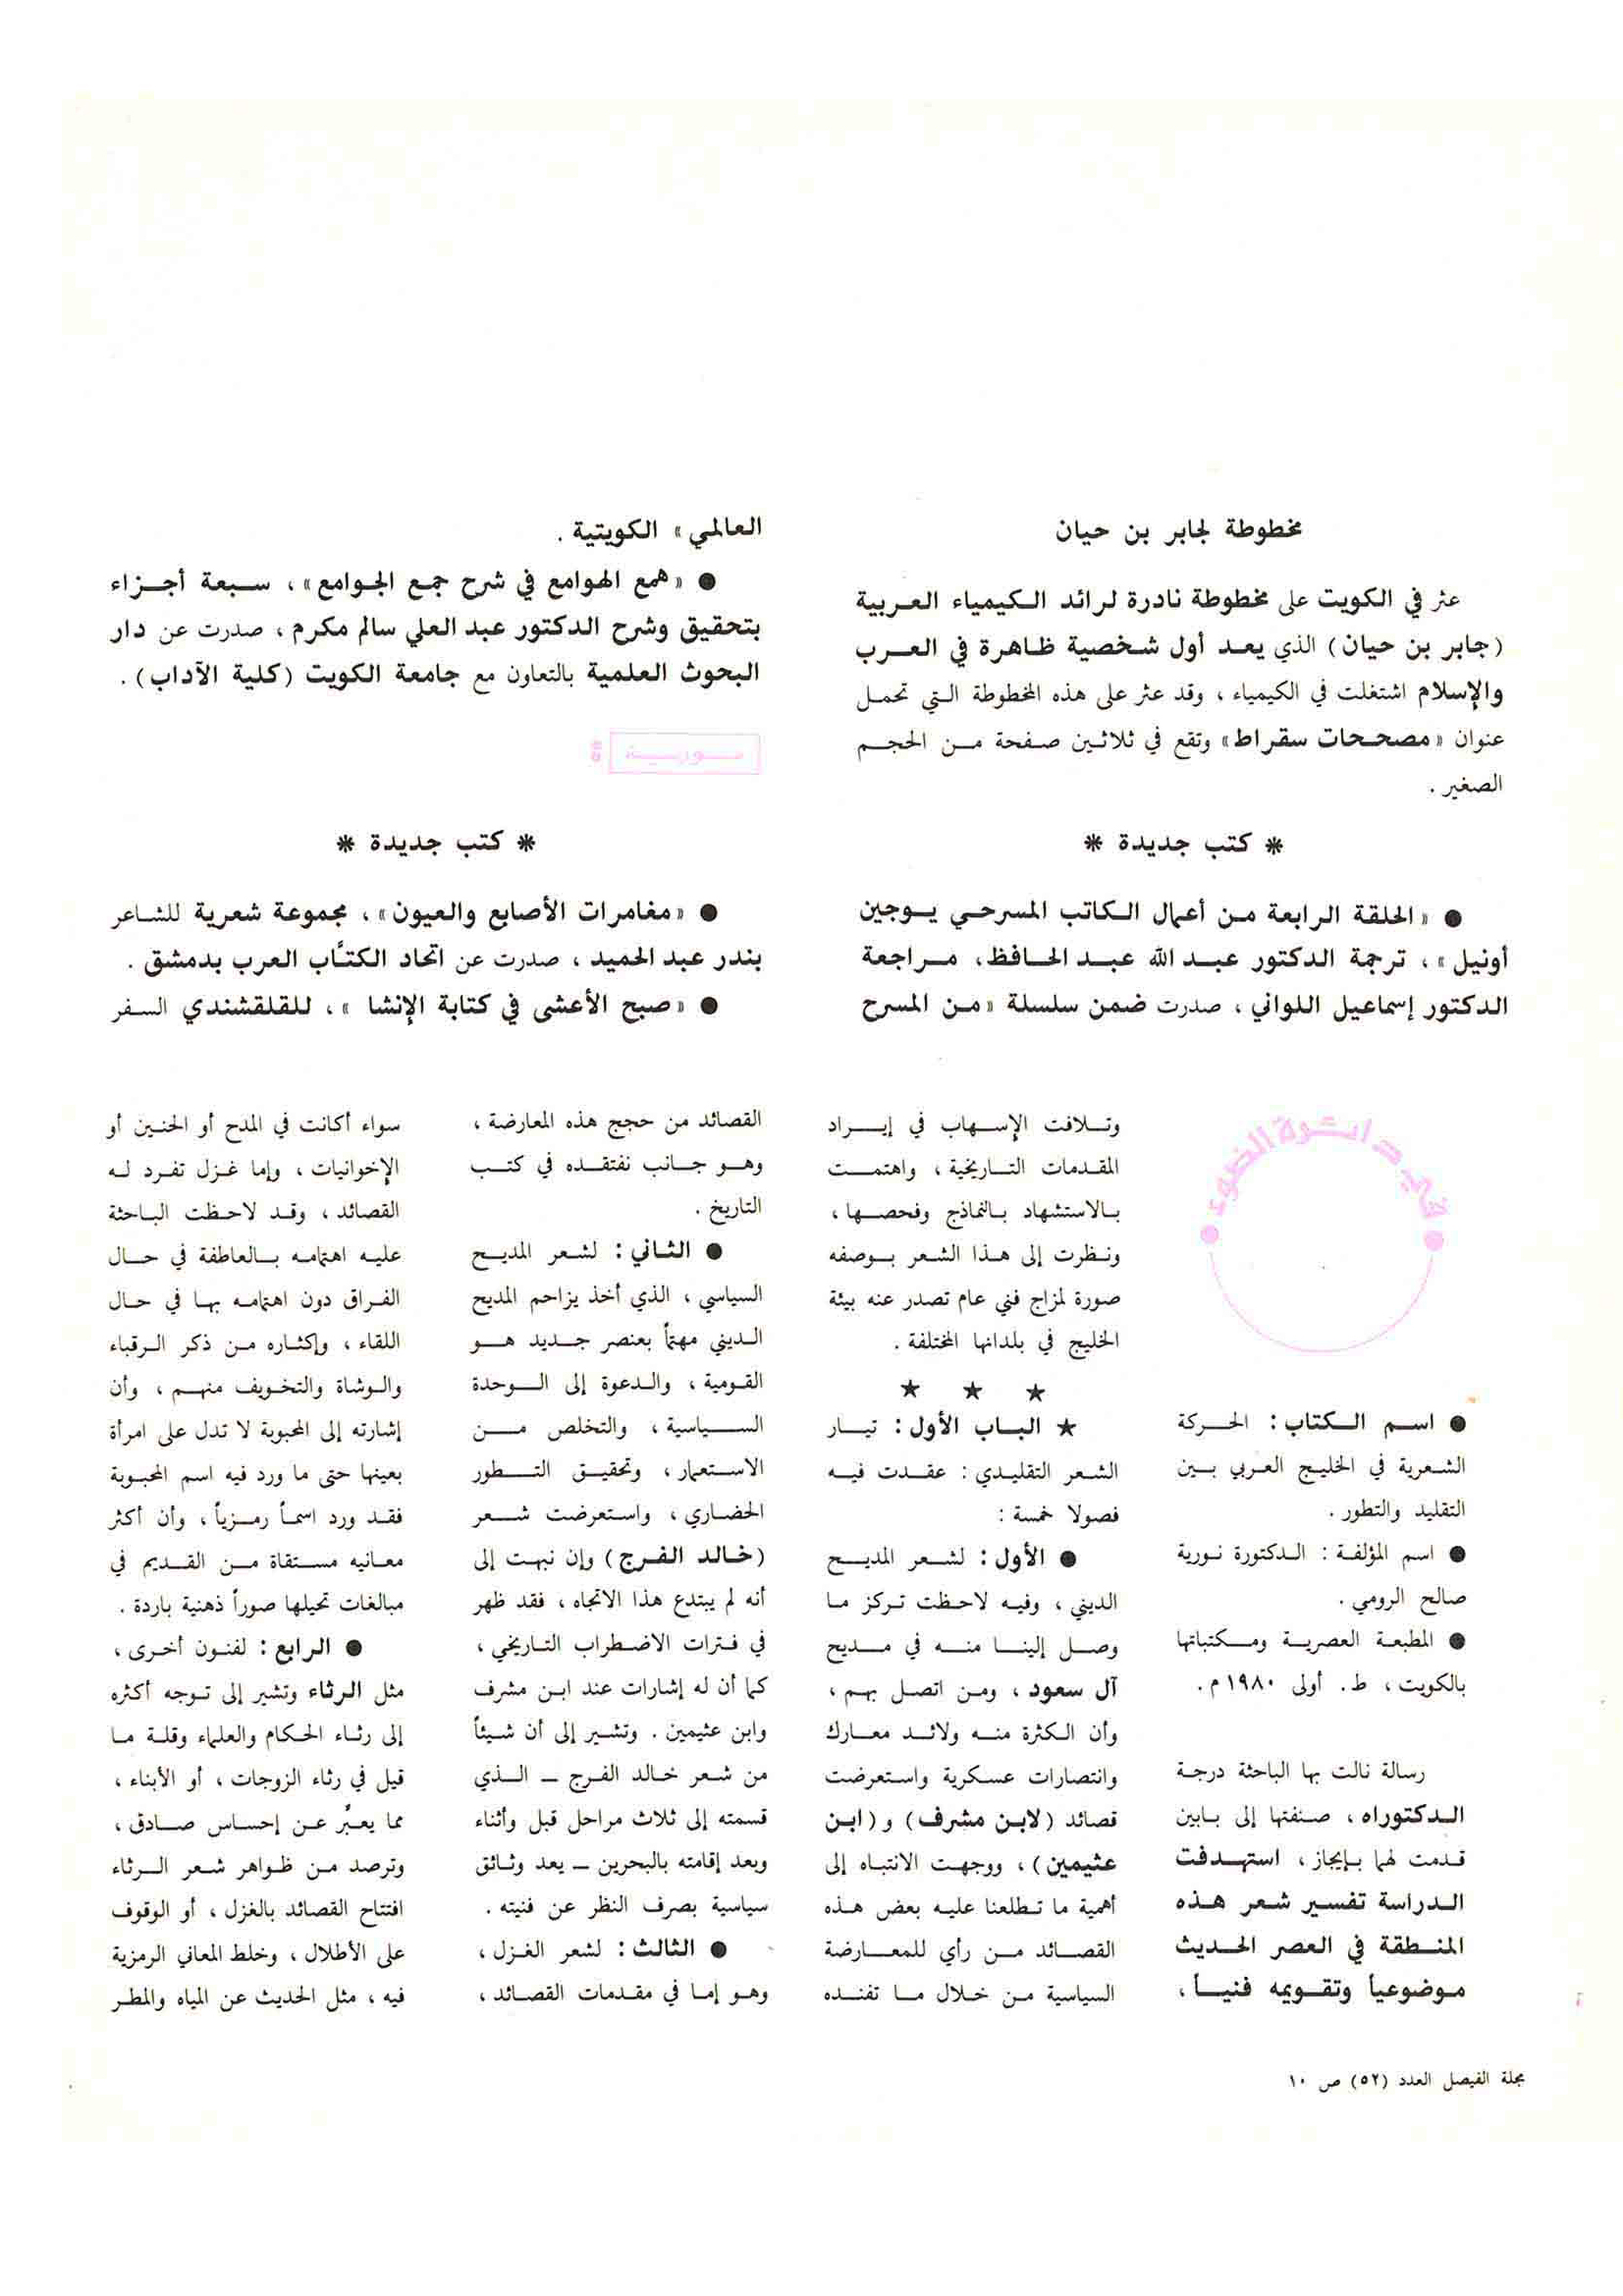 مخطوطة لجابر بن حيان
عثر في الكويت على مخطوطة نادرة لرائد الكيمياء العربية
(جابر بن حيان) الذي يعد أول شخصية ظاهرة في العرب
والإسلام اشتغلت في الكيمياء ، وقد عثر على هذه المخطوطة التي تحمل
عنوان «مصححات سقراط» وتقع في ثلاثين صفحة من الحجم
الصغير .
* كتب جديدة *
● «الحلقة الرابعة من أعمال الكاتب المسرحي يوجين
أونيل» ، ترجمة الدكتور عبد الله عبد الحافظ، مراجعة
الدكتور إسماعيل اللواني ، صدرت ضمن سلسلة «من المسرح
العالمي» الكويتية .
● «همع الهوامع في شرح جمع الجوامع» ، سبعة أجزاء
بتحقيق وشرح الدكتور عبد العلي سالم مكرم ، صدرت عن دار
البحوث العلمية بالتعاون مع جامعة الكويت (كلية الآداب) .
سورية
* كتب جديدة *
● «مغامرات الأصابع والعيون» ، مجموعة شعرية للشاعر
بندر عبد الحميد ، صدرت عن اتحاد الكتَّاب العرب بدمشق .
● «صبح الأعشى في كتابة الإنشا » ، للقلقشندي السفر
في دائرة الضوء
● اسم الكتاب : الحركة
الشعرية في الخليج العربي بين
التقليد والتطور .
● اسم المؤلفة : الدكتورة نورية
صالح الرومي .
● المطبعة العصرية ومكتباتها
بالكويت ، ط. أولى ١٩٨٠ م .
رسالة نالت بها الباحثة درجة
الدكتوراه ، صنفتها إلى بابين
قدمت لهما بإيجاز ، استهدفت
الدراسة تفسير شعر هذه
المنطقة في العصر الحديث
موضوعياً وتقويمه فنياً ،
وتلافت الإسهاب في إيراد
المقدمات التاريخية ، واهتمت
بالاستشهاد بالنماذج وفحصها ،
ونظرت إلى هذا الشعر بوصفه
صورة لمزاج فني عام تصدر عنه بيئة
الخليج في بلدانها المختلفة .
★ ★ ★
★ الباب الأول : تيار
الشعر التقليدي : عقدت فيه
فصولا خمسة :
● الأول : لشعر المديح
الديني ، وفيه لاحظت تركز ما
وصل إلينا منه في مديح
آل سعود ، ومن اتصل بهم ،
وأن الكثرة منه ولائد معارك
وانتصارات عسكرية واستعرضت
قصائد (لابن مشرف) و (ابن
عثيمين) ، ووجهت الانتباه إلى
أهمية ما تطلعنا عليه بعض هذه
القصائد من رأي للمعارضة
السياسية من خلال ما تفنده
القصائد من حجج هذه المعارضة ،
وهو جانب نفتقده في كتب
التاريخ .
● الثاني : لشعر المديح
السياسي ، الذي أخذ يزاحم المديح
الديني مهتماً بعنصر جديد هو
القومية ، والدعوة إلى الوحدة
السياسية ، والتخلص من
الاستعمار ، وتحقيق التطور
الحضاري ، واستعرضت شعر
(خالد الفرج) وإن نبهت إلى
أنه لم يبتدع هذا الاتجاه ، فقد ظهر
في فترات الاضطراب التاريخي ،
كما أن له إشارات عند ابن مشرف
وابن عثيمين . وتشير إلى أن شيئاً
من شعر خالد الفرج – الذي
قسمته إلى ثلاث مراحل قبل وأثناء
وبعد إقامته بالبحرين – يعد وثائق
سياسية بصرف النظر عن فنيته .
● الثالث : لشعر الغزل ،
وهو إما في مقدمات القصائد ،
سواء أكانت في المدح أو الحنين أو
الإخوانيات ، وإما غزل تفرد له
القصائد ، وقد لاحظت الباحثة
عليه اهتمامه بالعاطفة في حال
الفراق دون اهتمامه بها في حال
اللقاء ، وإكثاره من ذكر الرقباء
والوشاة والتخويف منهم ، وأن
إشارته إلى المحبوبة لا تدل على امرأة
بعينها حتى ما ورد فيه اسم المحبوبة
فقد ورد اسماً رمزياً ، وأن أكثر
معانيه مستقاة من القديم في
مبالغات تحيلها صوراً ذهنية باردة .
● الرابع : لفنون أخرى ،
مثل الرثاء وتشير إلى توجه أكثره
إلى رثاء الحكام والعلماء وقلة ما
قيل في رثاء الزوجات ، أو الأبناء ،
مما يعبَّر عن إحساس صادق ،
وترصد من ظواهر شعر الرثاء
افتتاح القصائد بالغزل ، أو الوقوف
على الأطلال ، وخلط المعاني الرمزية
فيه ، مثل الحديث عن المياه والمطر
مجلة الفيصل العدد (٥٢) ص ١٠